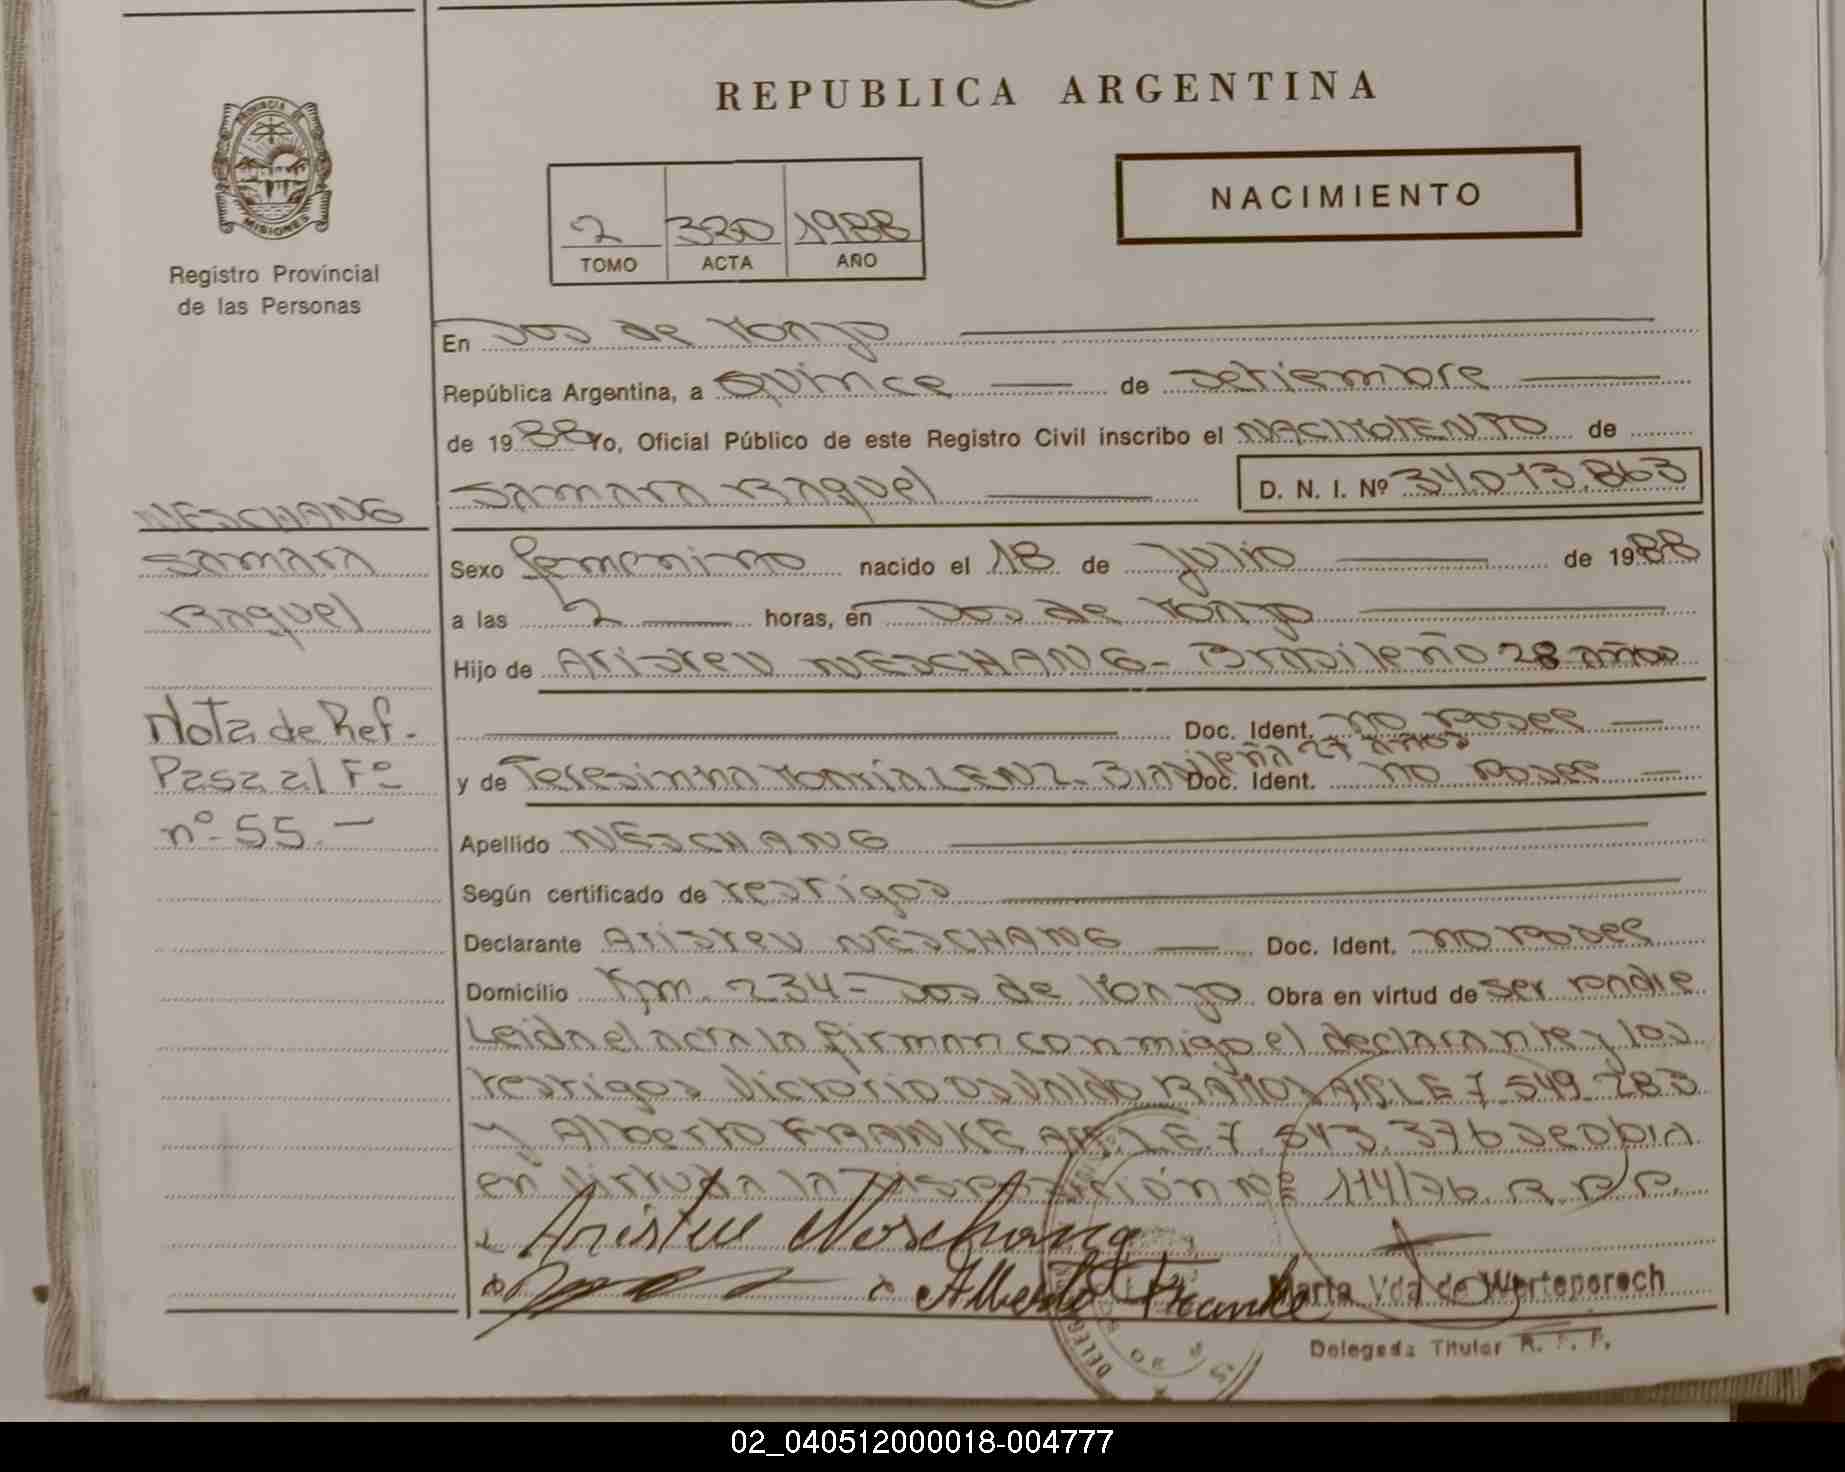 REPUBLICA ARGENTINA
PROVINCIA DE
MISIONES
Registro Provincial
de las Personas
NACIMIENTO
2 320 1988
TOMO ACTA AÑO
En Dos de Mayo
República Argentina, a Quince de Setiembre
de 1988 Yo, Oficial Público de este Registro Civil inscribo el NACIMIENTO de
Samara Raquel D. N. I. Nº 34.013.863
NESCHANG
Samara
Raquel
Sexo femenino nacido el 18 de Julio de 1988
a las 2 horas, en Dos de Mayo
Hijo de Aristeu NESCHANG - Brasileño 28 años
Doc. Ident. no posee
y de Teresinha María LENZ - Brasileña 27 años Doc. Ident. no posee
Nota de Ref.
Pasa al Fº
nº 55.-
Apellido NESCHANG
Según certificado de testigos
Declarante Aristeu NESCHANG Doc. Ident. no posee
Domicilio Km. 234 - Dos de Mayo Obra en virtud de ser padre
Leida el acta la firman conmigo el declarante y los
testigos Victorio Osvaldo RAMOS 7.549.283
y Alberto FRANKE 7.543.376 se obra
en virtud a la Disposición Nº 114/76 R.P.P.
Aristeu Neschang
Alberto Franke
Marta Vda de Werteperech
Delegada Titular R. P. P.
02_040512000018-004777